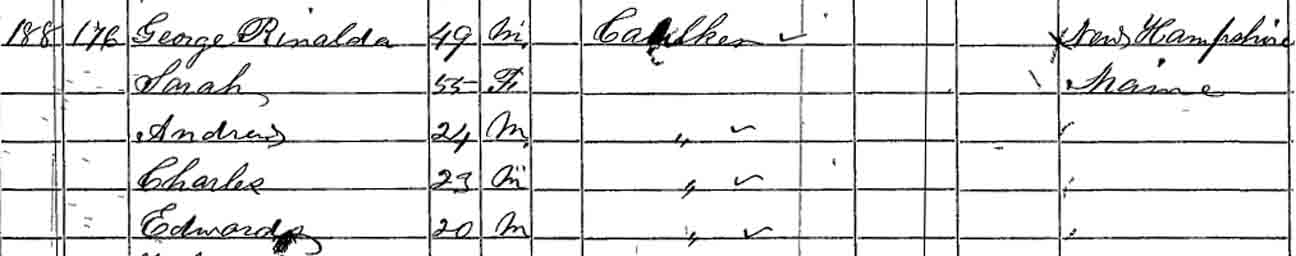 188 176 George Rinalda 49 M. Caulker ✓ New Hampshire
Sarah 55 F. Maine
Andrew 24 M. " ✓ "
Charles 23 M " ✓ "
Edward 20 M " ✓ "